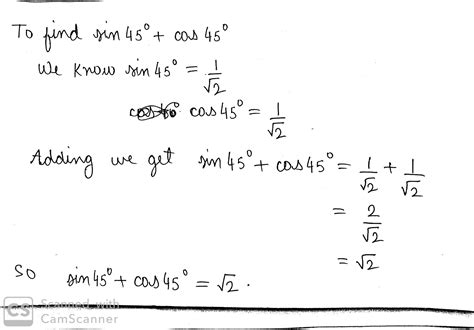 To find sin 45° + cos 45°
We know sin 45° = 1/√2
cos 45° = 1/√2
Adding we get sin 45° + cos 45° = 1/√2 + 1/√2
= 2/√2
= √2
So sin 45° + cos 45° = √2.
CS Scanned with
CamScanner